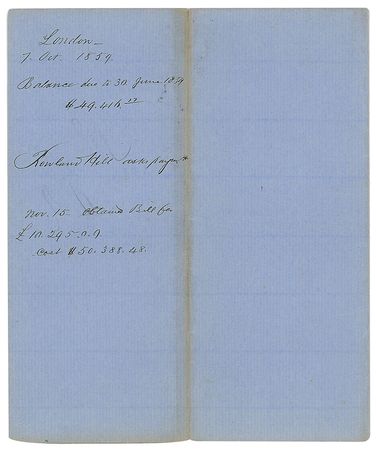 London_
7 Oct. 1859
Balance due to 30 June 1859
$49.416
Rowland Hill asks paymt
Nov. 15 obtained Bill for
£10.295.0.9
cost $50.388.48.